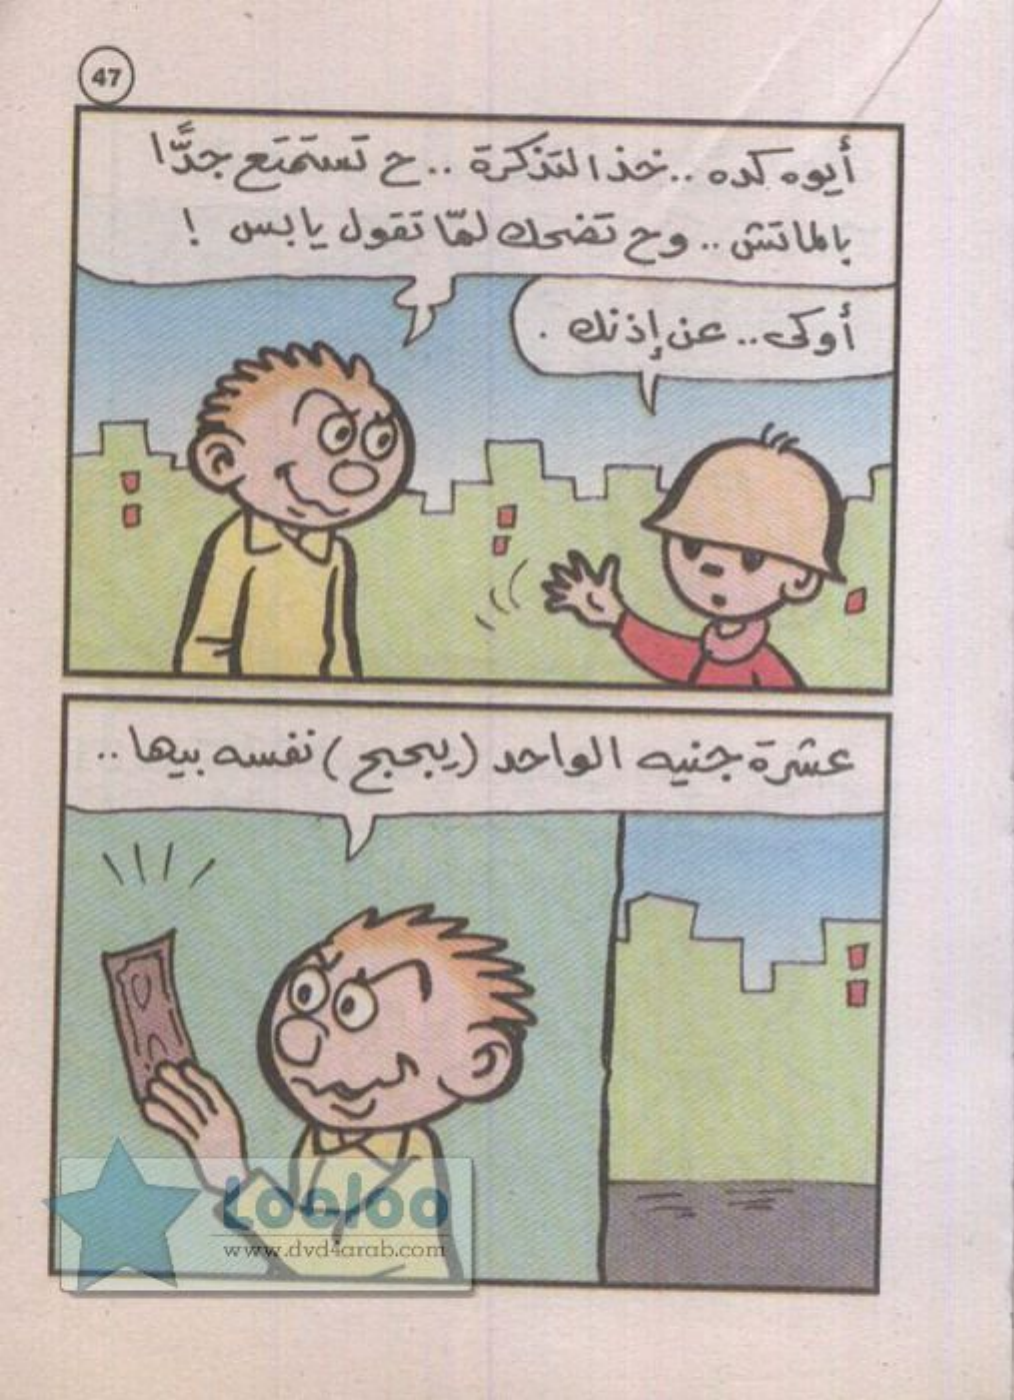 47
أيوه كده .. خذ التذكرة .. ح تستمتع جدًّا
بالماتش .. وح تضحك لمّا تقول يا بس !
أوكى .. عن إذنك .
عشرة جنيه الواحد (يبحبح) نفسه بيها ..
Looloo
www.dvd4arab.com